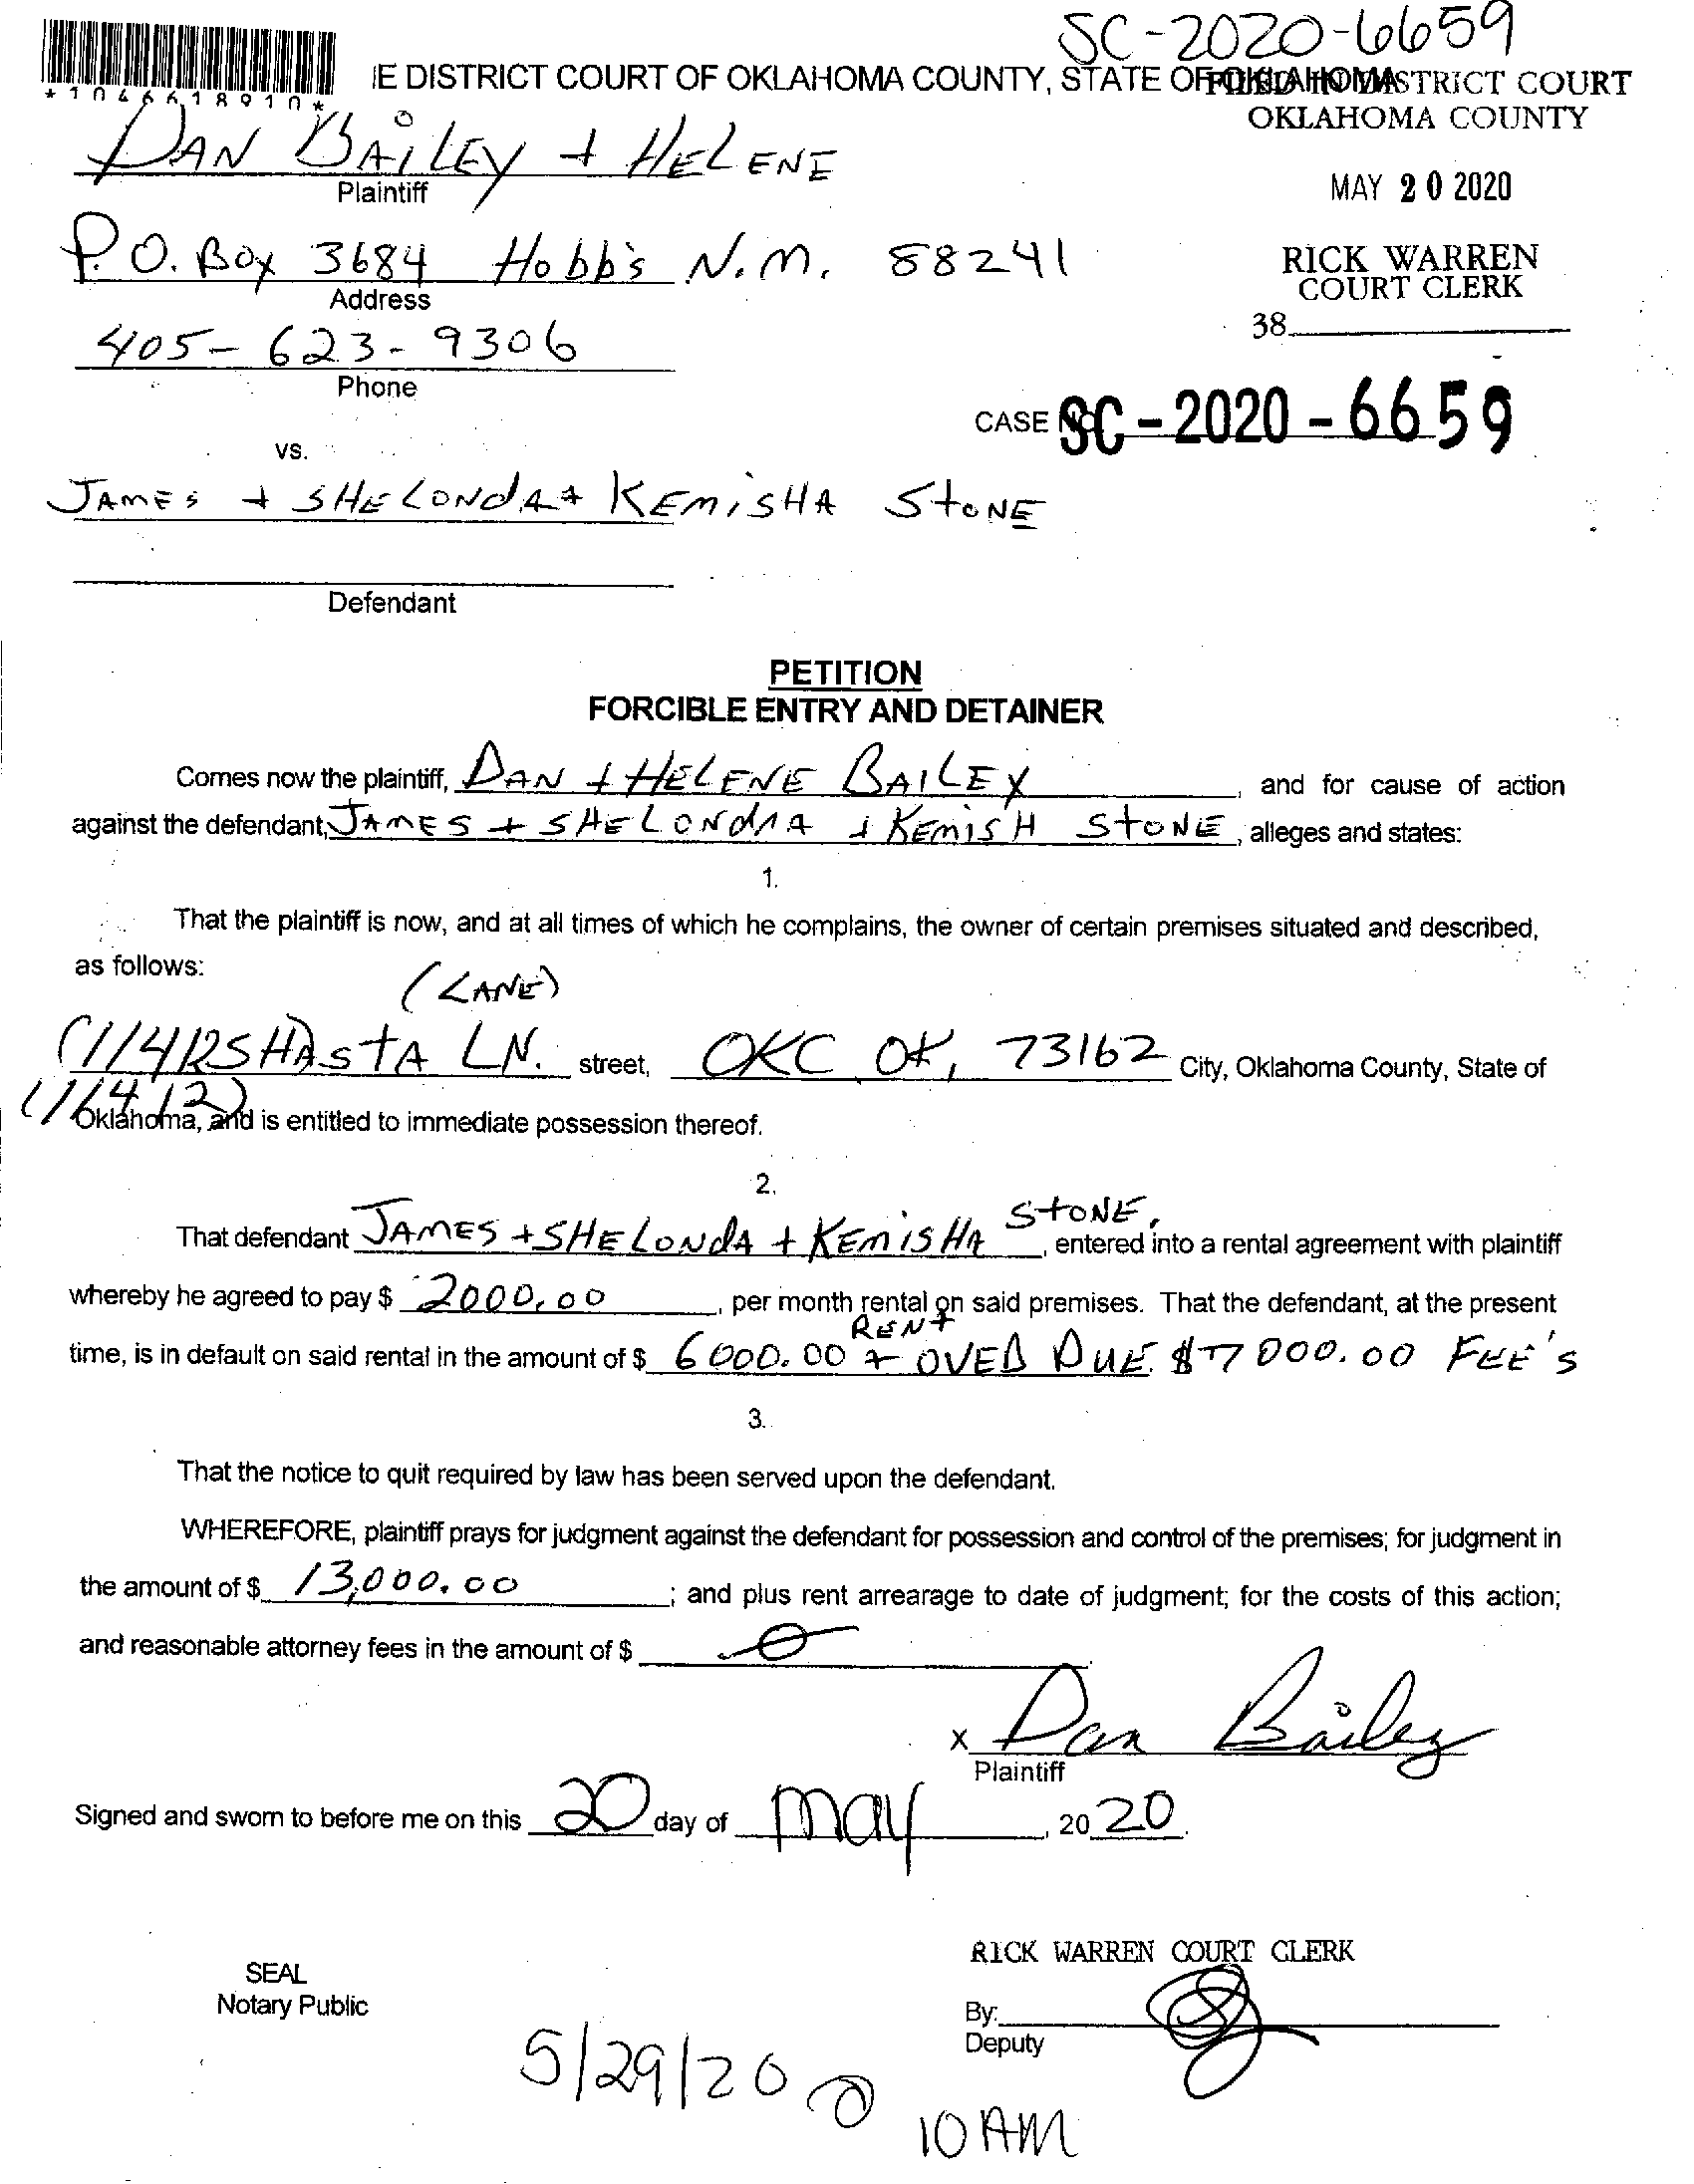 SC-2020-6659
*1046618910*
IE DISTRICT COURT OF OKLAHOMA COUNTY, STATE OF OKLAHOMA
FILED IN DISTRICT COURT
OKLAHOMA COUNTY
DAN BAiLEY + HELENE
Plaintiff
MAY 20 2020
P.O. Box 3684 Hobb's N.M. 88241
Address
RICK WARREN
COURT CLERK
38
405-623-9306
Phone
CASE NO. SC-2020-6659
vs.
JAMES + SHELONdA + KEMiSHA StoNE
Defendant
PETITION
FORCIBLE ENTRY AND DETAINER
Comes now the plaintiff, DAN + HELENE BAILEY, and for cause of action
against the defendant, JAMES + SHELONdA + KEMISH StoNE, alleges and states:
1.
That the plaintiff is now, and at all times of which he complains, the owner of certain premises situated and described,
as follows:
(LANE)
(11412 SHAStA LN. street, OKC OK, 73162 City, Oklahoma County, State of
(11412)
Oklahoma, and is entitled to immediate possession thereof.
2.
That defendant JAMES + SHELONdA + KEMiSHA StoNE, entered into a rental agreement with plaintiff
whereby he agreed to pay $ 2000.00, per month rental on said premises. That the defendant, at the present
RENt
time, is in default on said rental in the amount of $ 6000.00 + OVER DUE. $7000.00 FEE'S
3.
That the notice to quit required by law has been served upon the defendant.
WHEREFORE, plaintiff prays for judgment against the defendant for possession and control of the premises; for judgment in
the amount of $ 13,000.00; and plus rent arrearage to date of judgment; for the costs of this action;
and reasonable attorney fees in the amount of $ 0
x Dan Bailey
Plaintiff
Signed and sworn to before me on this 20 day of may, 20 20.
RICK WARREN COURT CLERK
SEAL
Notary Public
By:
Deputy
5/29/20 @
10 AM